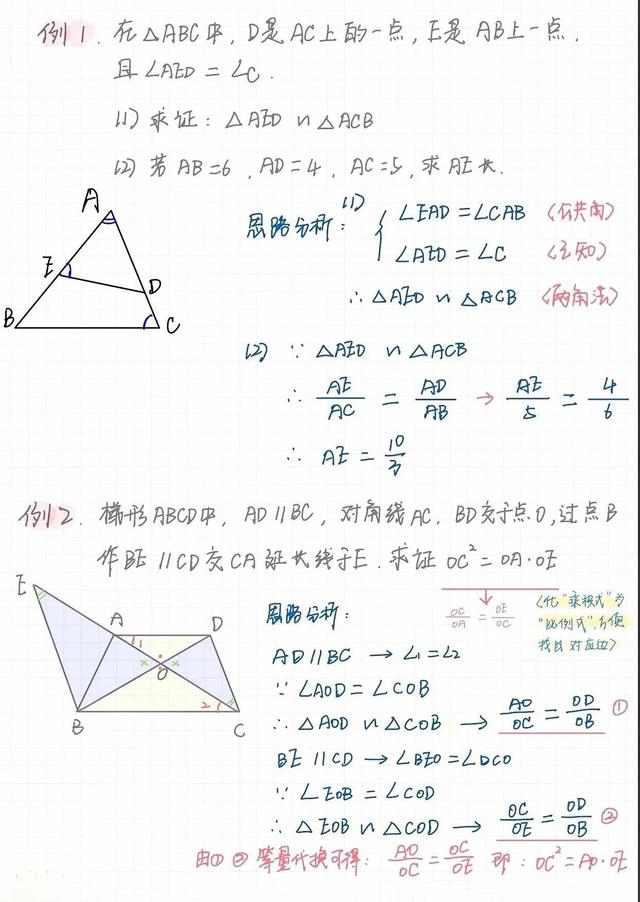 例1. 在△ABC中, D是AC上的一点, E是AB上一点,
且∠AED = ∠C.
(1) 求证: △AED ∽ △ACB
(2) 若AB=6, AD=4, AC=5, 求AE长.
A
E
D
B
C
思路分析: (1) { ∠EAD = ∠CAB (公共角)
∠AED = ∠C (已知)
∴ △AED ∽ △ACB (两角法)
(2) ∵ △AED ∽ △ACB
∴ AE/AC = AD/AB → AE/5 = 4/6
∴ AE = 10/3
例2. 梯形ABCD中, AD∥BC, 对角线AC, BD交于点O, 过点B
作BE∥CD交CA延长线于E. 求证 OC²=OA·OE
E
A
D
1
O
2
B
C
OC/OA = OE/OC
(化"乘积式"为
"比例式"方便
找其对应边)
思路分析:
AD∥BC → ∠1=∠2
∵ ∠AOD = ∠COB
∴ △AOD ∽ △COB → AO/OC = OD/OB ①
BE∥CD → ∠BEO = ∠DCO
∵ ∠EOB = ∠COD
∴ △EOB ∽ △COD → OC/OE = OD/OB ②
由①②等量代换可得: AO/OC = OC/OE 即: OC²=AO·OE